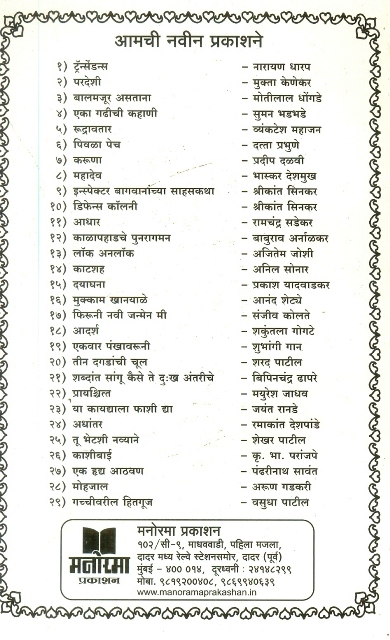 आमची नवीन प्रकाशने
१) ट्रॅन्सेंडन्स – नारायण धारप
२) परदेशी – मुक्ता केणेकर
३) बालमजूर असताना – मोतीलाल धोंगडे
४) एका गढीची कहाणी – सुमन भडभडे
५) रूद्रावतार – व्यंकटेश महाजन
६) पिवळा पेच – दत्ता प्रभुणे
७) करूणा – प्रदीप दळवी
८) महादेव – भास्कर देशमुख
९) इन्स्पेक्टर बागवानांच्या साहसकथा – श्रीकांत सिनकर
१०) डिफेन्स कॉलनी – श्रीकांत सिनकर
११) आधार – रामचंद्र सडेकर
१२) काळापहाडचे पुनरागमन – बाबुराव अर्नाळकर
१३) लॉक अनलॉक – अजितेम जोशी
१४) काटशह – अनिल सोनार
१५) दयाघना – प्रकाश यादवाडकर
१६) मुक्काम खानयाळे – आनंद शेट्ये
१७) फिरूनी नवी जन्मेन मी – संजीव कोलते
१८) आदर्श – शकुंतला गोगटे
१९) एकवार पंखावरूनी – शुभांगी गान
२०) तीन दगडांची चूल – शरद पाटील
२१) शब्दांत सांगू कैसे ते दुःख अंतरीचे – बिपिनचंद्र ढापरे
२२) प्रायश्चित्त – मयुरेश जाधव
२३) या कायद्याला फाशी द्या – जयंत रानडे
२४) अधांतर – रमाकांत देशपांडे
२५) तू भेटशी नव्याने – शेखर पाटील
२६) काशीबाई – कृ. भा. परांजपे
२७) एक हृद्य आठवण – पंढरीनाथ सावंत
२८) मोहजाल – अरूण गडकरी
२९) गच्चीवरील हितगूज – वसुधा पाटील
मनोरमा
प्रकाशन
मनोरमा प्रकाशन
१०२/सी-९, माधववाडी, पहिला मजला,
दादर मध्य रेल्वे स्टेशनसमोर, दादर (पूर्व)
मुंबई – ४०० ०१४, दूरध्वनी : २४१४८२९९
मोबा. ९८१९२००४०८, ९८६९९४०६३९
www.manoramaprakashan.in